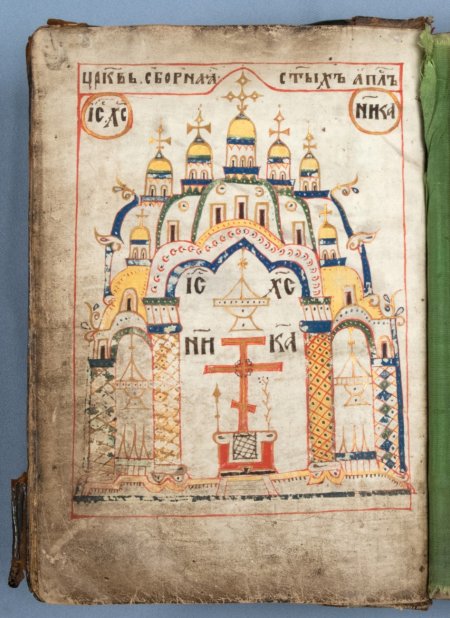 ЦРКВЬ СБОРНАѦ СТЫХЪ АПЛЪ
ІС ХС НИКА
ІС ХС
НИ КА